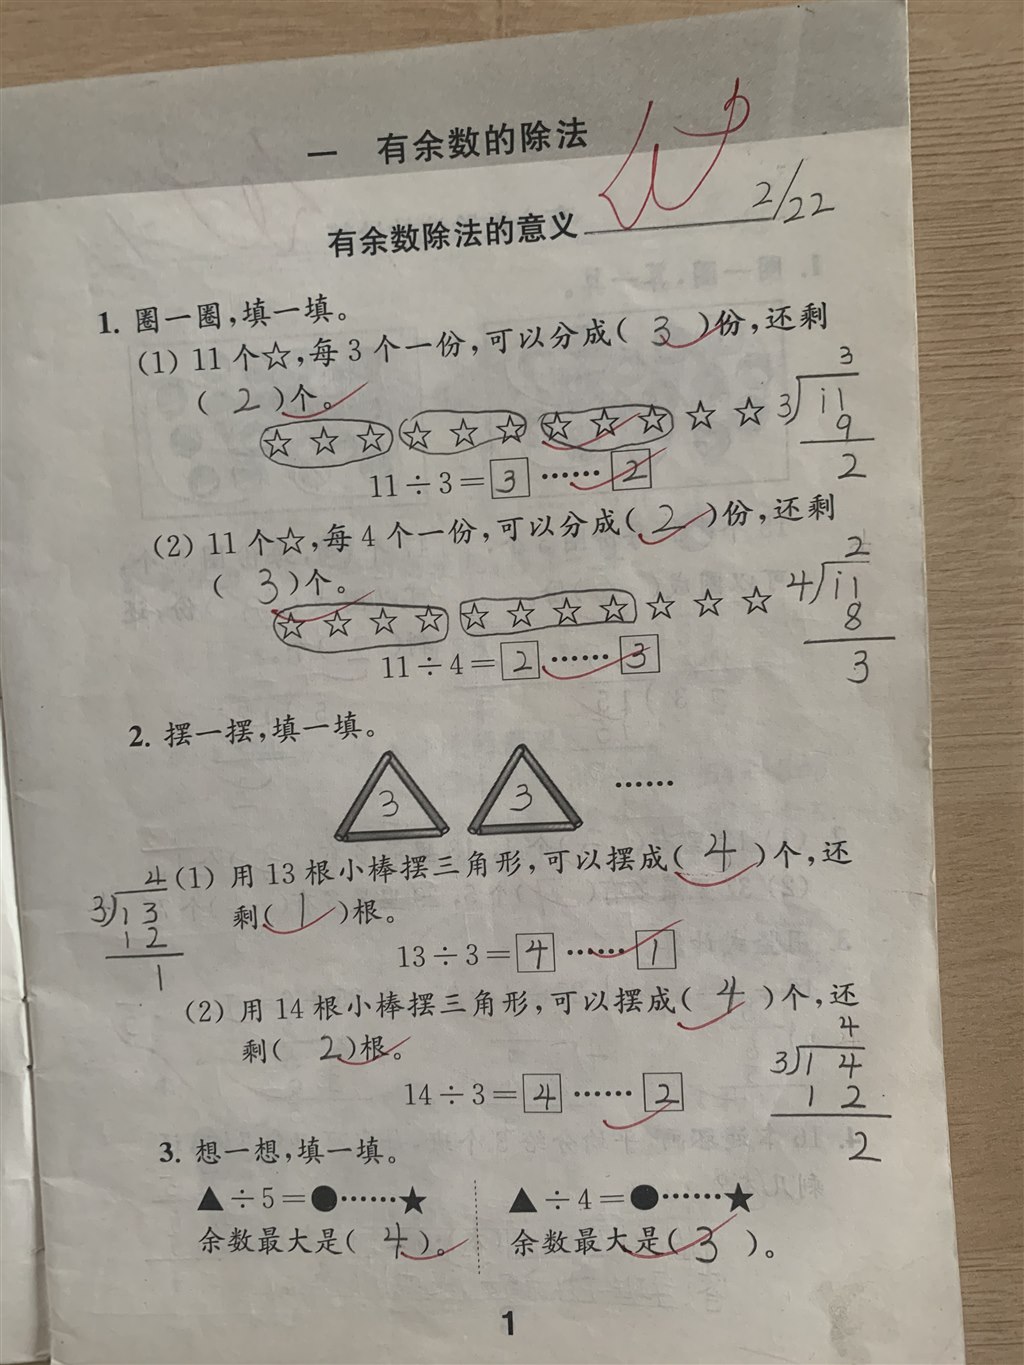 一 有余数的除法
有余数除法的意义 2/22
1. 圈一圈,填一填。
(1) 11个☆,每3个一份,可以分成( 3 )份,还剩
( 2 )个。
☆ ☆ ☆ ☆ ☆ ☆ ☆ ☆ ☆ ☆ ☆
11÷3=3……2
3
3)11
9
2
(2) 11个☆,每4个一份,可以分成( 2 )份,还剩
( 3 )个。
☆ ☆ ☆ ☆ ☆ ☆ ☆ ☆ ☆ ☆ ☆
11÷4=2……3
2
4)11
8
3
2. 摆一摆,填一填。
3 3 ……
(1) 用13根小棒摆三角形,可以摆成( 4 )个,还
剩( 1 )根。
13÷3=4……1
4
3)13
12
1
(2) 用14根小棒摆三角形,可以摆成( 4 )个,还
剩( 2 )根。
14÷3=4……2
4
3)14
12
2
3. 想一想,填一填。
▲÷5=●……★ ▲÷4=●……★
余数最大是( 4 )。 余数最大是( 3 )。
1